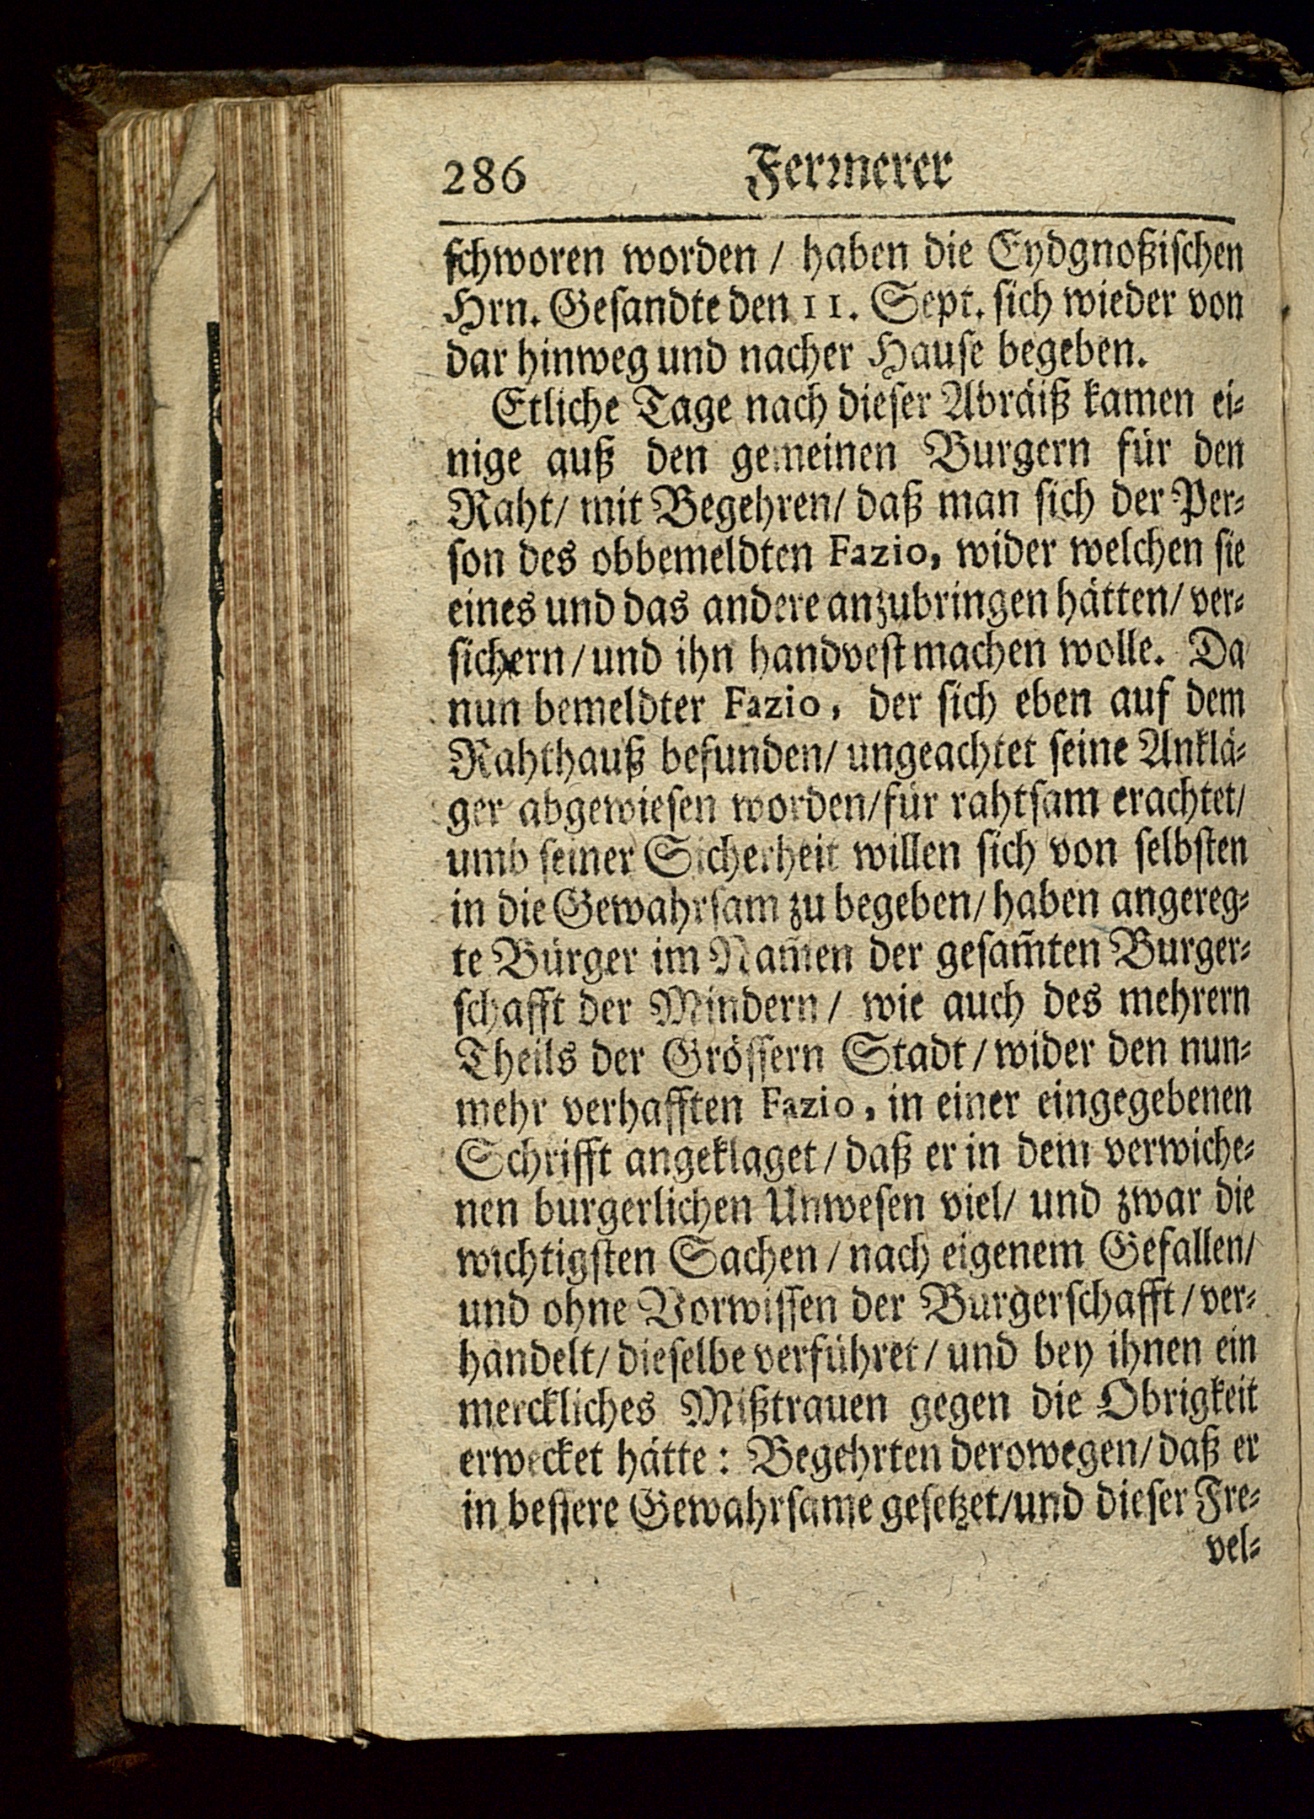 286 Fermerer
schworen worden / haben die Eydgnoßischen
Hrn. Gesandte den 11. Sept. sich wieder von
dar hinweg und nacher Hause begeben.
Etliche Tage nach dieser Abräiß kamen ei⸗
nige auß den gemeinen Burgern für den
Raht/ mit Begehren/ daß man sich der Per⸗
son des obbemeldten Fazio, wider welchen sie
eines und das andere anzubringen hätten/ ver⸗
sichern/und ihn handvest machen wolle. Da
nun bemeldter Fazio, der sich eben auf dem
Rahthauß befunden/ ungeachtet seine Anklä⸗
ger abgewiesen worden/für rahtsam erachtet/
umb seiner Sicherheit willen sich von selbsten
in die Gewahrsam zu begeben/ haben angereg⸗
te Bürger im Nam̃en der gesam̃ten Burger⸗
schafft der Mindern / wie auch des mehrern
Theils der Grössern Stadt / wider den nun⸗
mehr verhafften Fazio, in einer eingegebenen
Schrifft angeklaget / daß er in dem verwiche⸗
nen burgerlichen Unwesen viel/ und zwar die
wichtigsten Sachen / nach eigenem Gefallen/
und ohne Vorwissen der Burgerschafft / ver⸗
handelt/ dieselbe verführet / und bey ihnen ein
merckliches Mißtrauen gegen die Obrigkeit
erwecket hätte: Begehrten derowegen/ daß er
in bessere Gewahrsame gesetzet/und dieser Fre⸗
vel⸗